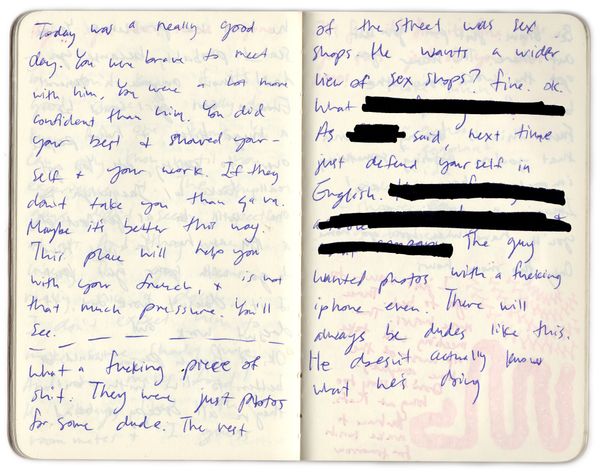 Today was a really good
day. You were brave to meet
with him. You were a lot more
confident than him. You did
your best & showed your-
self & your work. If they
don't take you than ça va.
Maybe it's better this way.
This place will help you
with your french, & is not
that much pressure. You'll
see.
What a fucking piece of
shit. They were just photos
for some dude. The rest
of the street was sex
shops. He wants a wider
view of sex shops? fine. ok.
What
As said, next time
just defend yourself in
English.
The guy
wanted photos with a fucking
iphone even. There will
always be dudes like this.
He doesn't actually know
what he's doing